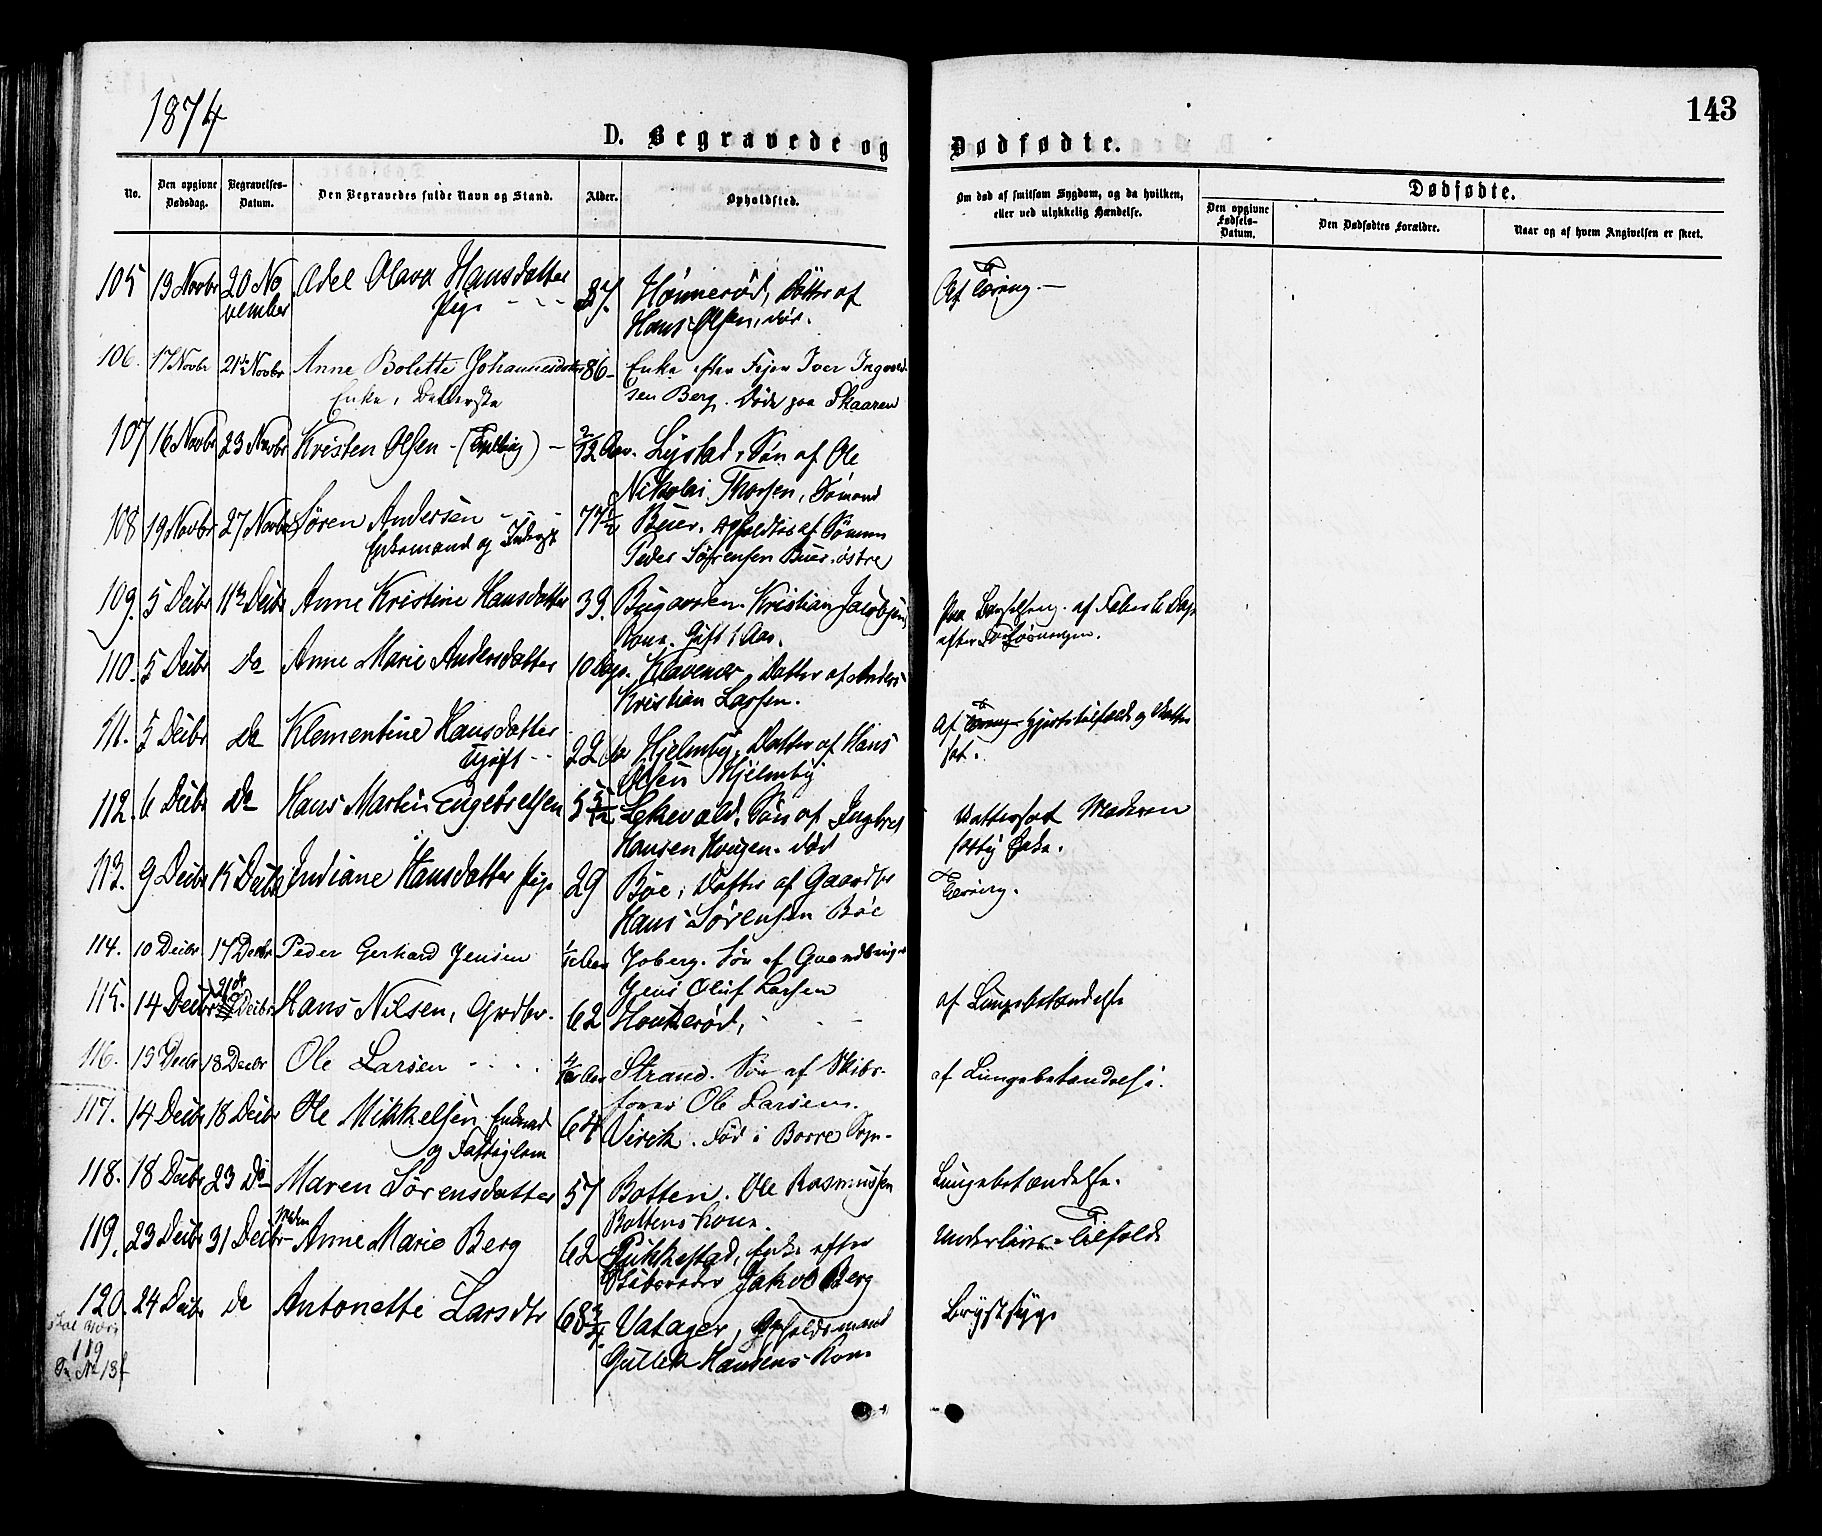 1874
143
D. Begravede og Dødfødte.
No.
Den opgivne Dødsdag.
Begravelses-Datum.
Den Begravedes fulde Navn og Stand.
Alder.
Opholdsted.
Om død af smitsom Sygdom, og da hvilken, eller ved ulykkelig Hændelse.
Dødfødte.
Den opgivne Fødsels-Datum.
Den Dødfødtes Forældre.
Naar og af hvem Angivelsen er skeet.
105 19 Novbr 20 No Adel Olava Hansdatter Datter af Af Tæring.
vember Pige Hans Olsen, død.
106. 17 Novbr 21de Novbr Anne Bolette Johannesdatter 86 Enke efter Iver
Enke, sen Berg. Døde paa Skaaren
107 16 Novbr 23 Novbr Kristen Olsen - 2/12 Aar. Lystad, Søn af Ole
Nikolai Thorsen, Sømand
108 19 Novbr 27 Novbr Søren Andersen 77 1/2 Buer. af Sønnen
Enkemand og Peder Sørensen Buer østre
109. 5 Decbr 11te Decbr Anne Kristine Hansdatter 39. Bugaarden. Kristian Jacobsens Paa Barselseng. af Feber 6 Dage
Kone. Gift 1 Aar. efter Forløsningen.
110. 5 Decbr Do Anne Marie Andersdatter 10 Dage. Klavenes, Datter af Anders
Kristian Larsen.
111. 5 Decbr Do Klementine Hansdatter 22 Aar Hjelmby. Datter af Hans Af Hjertetilfælde og Vatter
Ugift Olsen Hjelmby sot.
112. 6 Decbr Do Hans Martin Engebretsen 5 5/12 Lekevold. Søn af Ingbret Vattersot
Hansen Haugen. død
113. 9 Decbr 15 Decbr Indiane Hansdatter Pige 29 Bøe, Datter af Gaardbr Tæring.
Hans Sørensen Bøe
114. 10 Decbr 17 Decbr Peder Gerhard Jensen Joberg. Søn af Gaardbruger
Jens Oluf Larsen
115. 14 Decbr 21de Decbr Hans Nilsen, Grdbr. 62 Honkerød, af Lungebetændelse
116. 13 Decbr 18 Decbr Ole Larsen Strand. Søn af Skibs- af Lungebetændelse.
fører Ole Larsen.
117. 14 Decbr 18 Decbr Ole Mikkelsen Enkemd 64 Virik. Fød i Borre Sogn.
og Fattiglem
118. 18 Decbr 23 Do Maren Sørensdatter 57 Botten. Ole Rasmussen Lungebetændelse.
Bottens Kone.
119. 23 Decbr 31 Decbr Madm Anne Marie Berg 62 Pukkestad, Enke efter Underlivs-Tilfælde
Skibsreder Jakob Berg
120. 24 Decbr do Antonette Larsdtr 68 3/4 Vatager, Opholdsmand Brystsyge
Gullik Hansens Kone
skal være
119